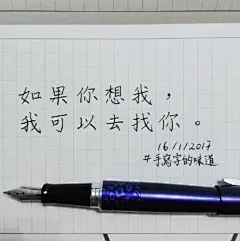 如果你想我，
我可以去找你。
16/1/2017
#手寫字的味道